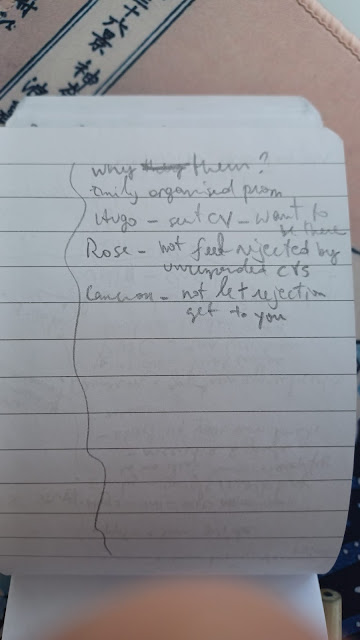 三十六景 神
why them?
Emily organised prom
Hugo - sent CV - want to
be there
Rose - not feel rejected by
unresponded CVs
Cameron - not let rejection
get to you